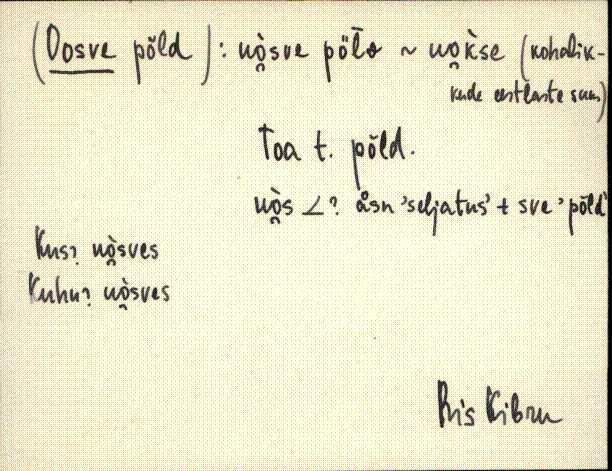 (Oosve põld): u̯ò̭sve pȫlᴅ ~ u̯o̭k̀se (kohalik-
kude eestlaste suus)
Toa t. põld.
u̯ò̭s < ? åsn 'seljatus' + sve 'põld'
Kus? u̯ò̭sves
Kuhu? u̯ò̭sves